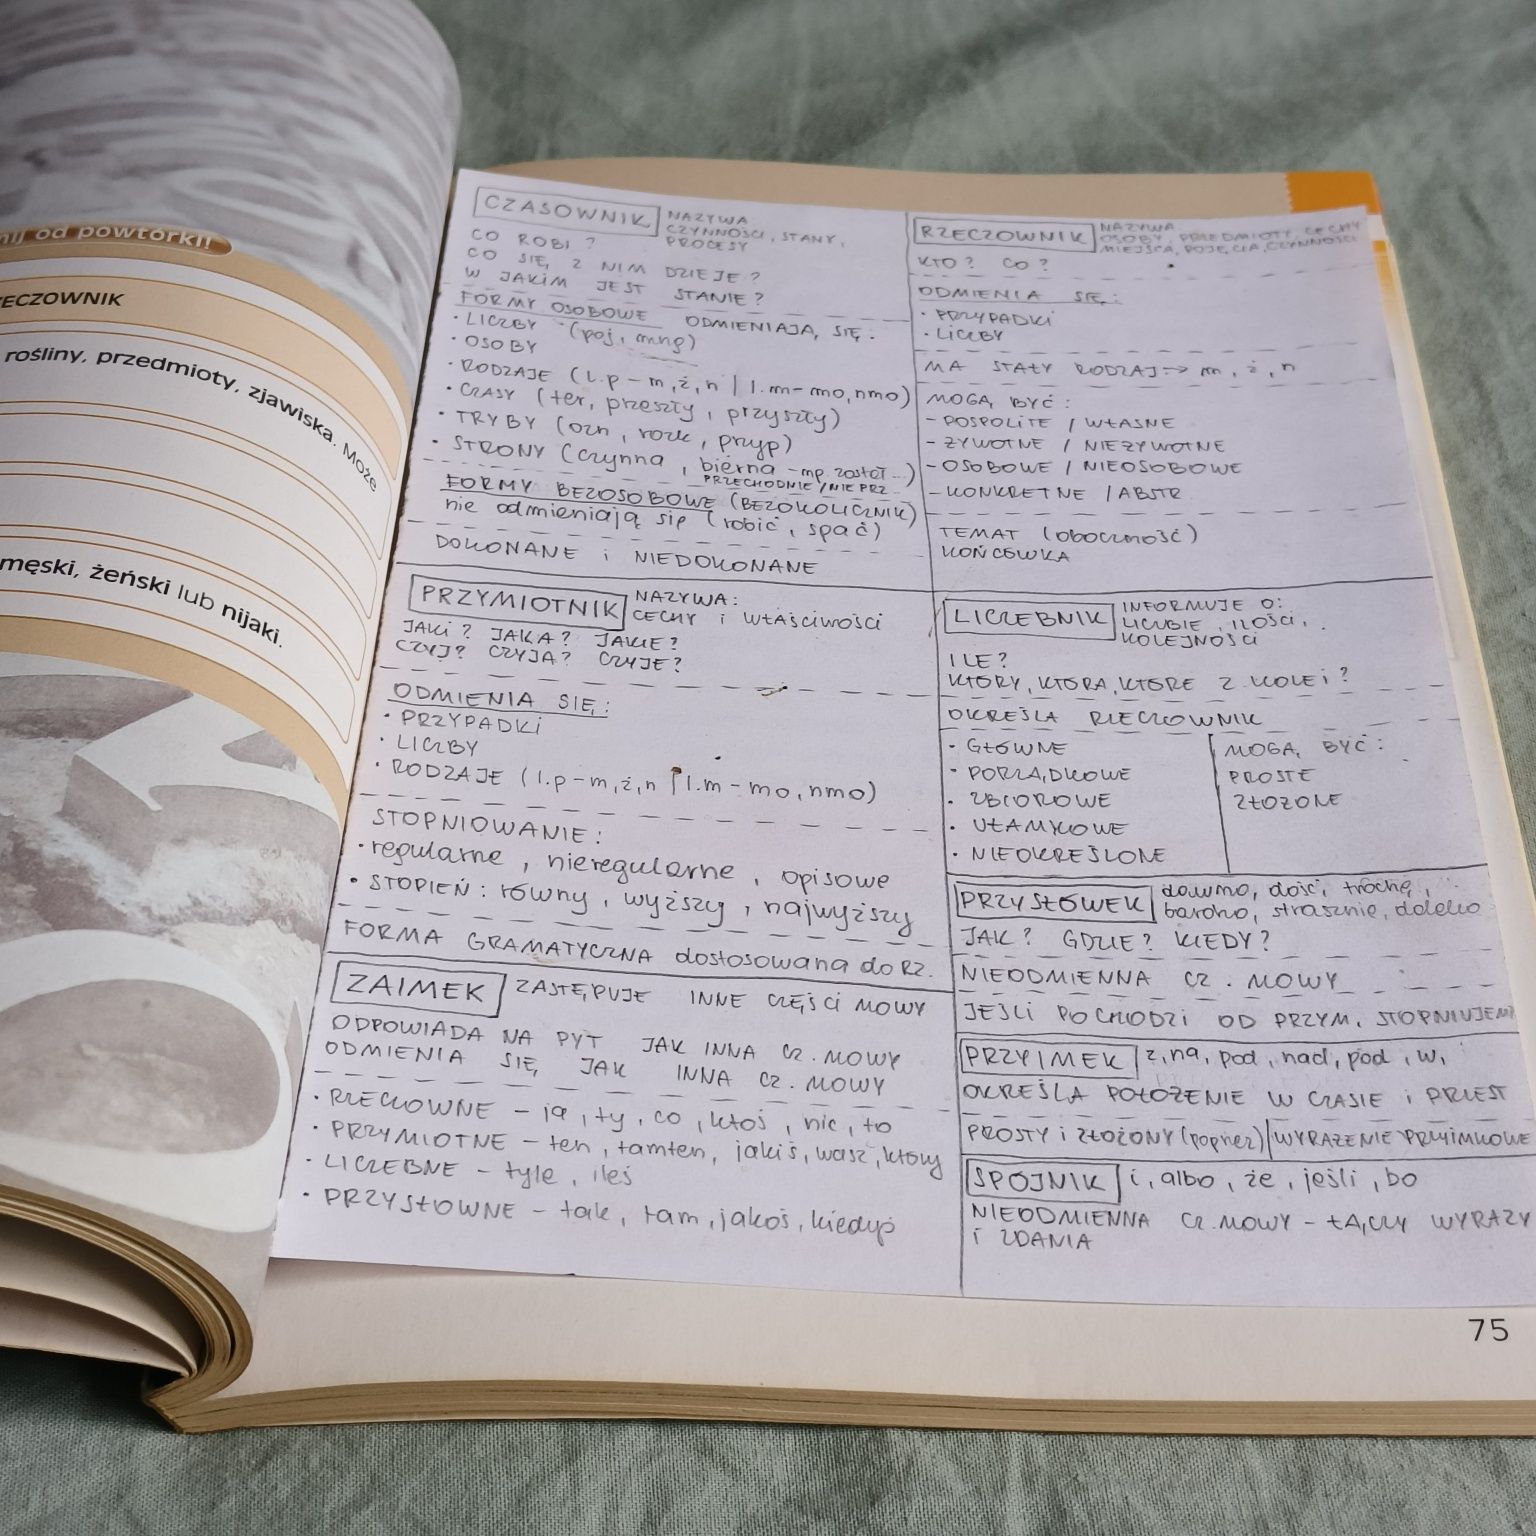 nij od powtórki!
RZECZOWNIK
rośliny, przedmioty, zjawiska. Może
męski, żeński lub nijaki.
CZASOWNIK NAZYWA
CZYNNOŚCI, STANY,
PROCESY
CO ROBI?
CO SIĘ Z NIM DZIEJE?
W JAKIM JEST STANIE?
FORMY OSOBOWE ODMIENIAJĄ SIĘ:
• LICZBY (poj, mng)
• OSOBY
• RODZAJE (l.p – m, ż, n | l.m – mo, nmo)
• CZASY (ter, przeszły, przyszły)
• TRYBY (ozn, rozk, przyp)
• STRONY (czynna, bierna – np. został...)
PRZECHODNIE / NIEPRZ.
FORMY BEZOSOBOWE (BEZOKOLICZNIK)
nie odmieniają się (robić, spać)
DOKONANE i NIEDOKONANE
PRZYMIOTNIK NAZYWA:
CECHY i WŁAŚCIWOŚCI
JAKI? JAKA? JAKIE?
CZYJ? CZYJA? CZYJE?
ODMIENIA SIĘ:
• PRZYPADKI
• LICZBY
• RODZAJE (l.p – m, ż, n | l.m – mo, nmo)
STOPNIOWANIE:
• regularne, nieregularne, opisowe
• STOPIEŃ: równy, wyższy, najwyższy
FORMA GRAMATYCZNA dostosowana do RZ.
ZAIMEK ZASTĘPUJE INNE CZĘŚCI MOWY
ODPOWIADA NA PYT JAK INNA CZ. MOWY
ODMIENIA SIĘ JAK INNA CZ. MOWY
• RZECZOWNE – ja, ty, co, ktoś, nic, to
• PRZYMIOTNE – ten, tamten, jakiś, wasz, który
• LICZEBNE – tyle, ileś
• PRZYSŁOWNE – tak, tam, jakoś, kiedyś
RZECZOWNIK NAZYWA
OSOBY, PRZEDMIOTY, CECHY
MIEJSCA, POJĘCIA, CZYNNOŚCI
KTO? CO?
ODMIENIA SIĘ:
• PRZYPADKI
• LICZBY
MA STAŁY RODZAJ → m, ż, n
MOGĄ BYĆ:
– POSPOLITE / WŁASNE
– ŻYWOTNE / NIEŻYWOTNE
– OSOBOWE / NIEOSOBOWE
– KONKRETNE / ABSTR.
TEMAT (oboczność)
KOŃCÓWKA
LICZEBNIK INFORMUJE O:
LICZBIE, ILOŚCI,
KOLEJNOŚCI
ILE?
KTÓRY, KTÓRA, KTÓRE Z KOLEI?
OKREŚLA RZECZOWNIK
• GŁÓWNE
• PORZĄDKOWE
• ZBIOROWE
• UŁAMKOWE
• NIEOKREŚLONE
MOGĄ BYĆ:
PROSTE
ZŁOŻONE
PRZYSŁÓWEK dawno, dość, trochę,
bardzo, strasznie, daleko
JAK? GDZIE? KIEDY?
NIEODMIENNA CZ. MOWY
JEŚLI POCHODZI OD PRZYM. STOPNIUJEMY
PRZYIMEK z, na, pod, nad, pod, w,
OKREŚLA POŁOŻENIE W CZASIE i PRZEST
PROSTY i ZŁOŻONY (poprzez) | WYRAŻENIE PRZYIMKOWE
SPÓJNIK i, albo, że, jeśli, bo
NIEODMIENNA CZ. MOWY – ŁĄCZY WYRAZY
i ZDANIA
75